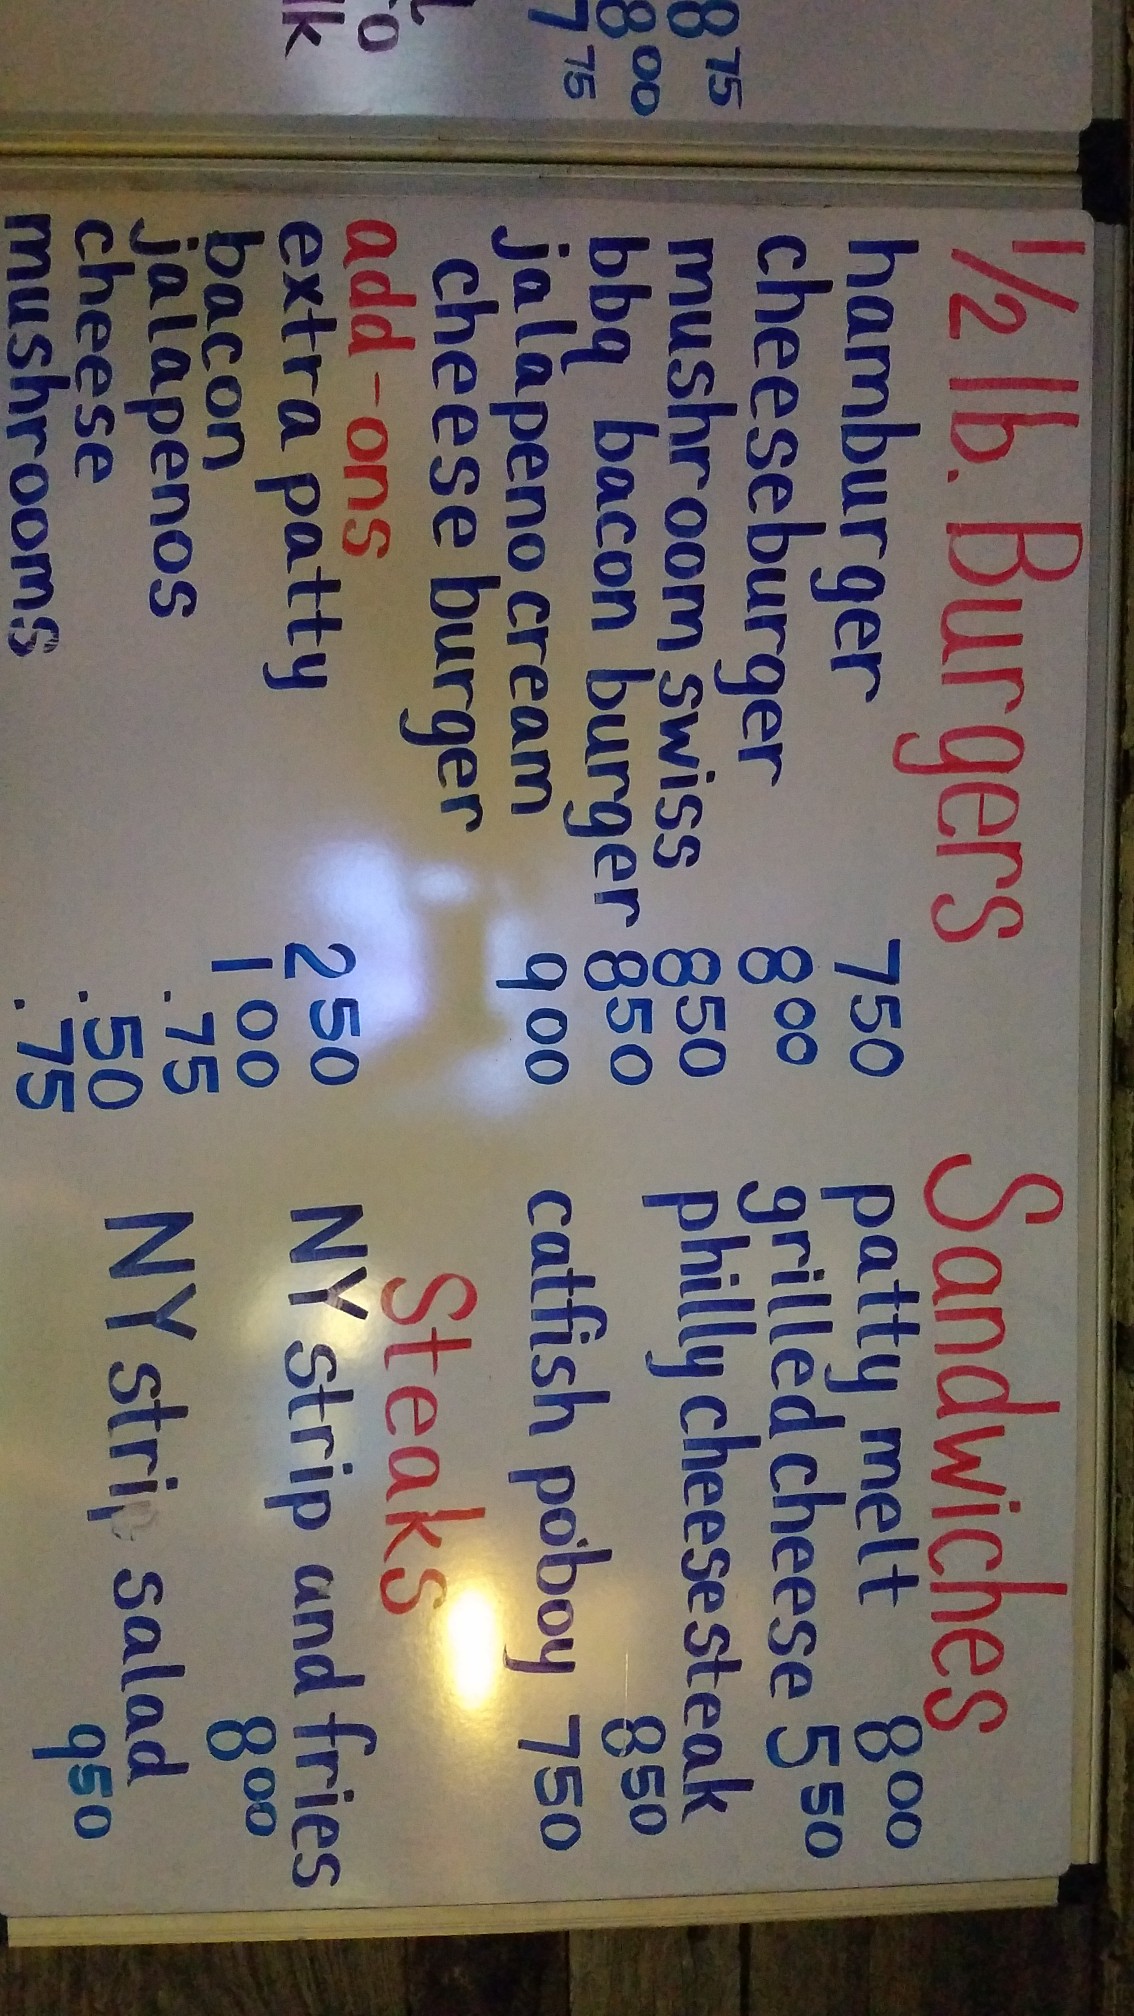 8 75
8 00
7 75
lk
1/2 lb. Burgers
hamburger 7 50
cheeseburger 8 00
mushroom swiss 8 50
bbq bacon burger 8 50
jalapeno cream
cheese burger 9 00
add-ons
extra patty 2 50
bacon 1 00
jalapenos .75
cheese .50
mushrooms .75
Sandwiches
patty melt 8 00
grilled cheese 5 50
philly cheesesteak
8 50
catfish poboy 7 50
Steaks
NY strip and fries
8 00
NY strip salad
9 50